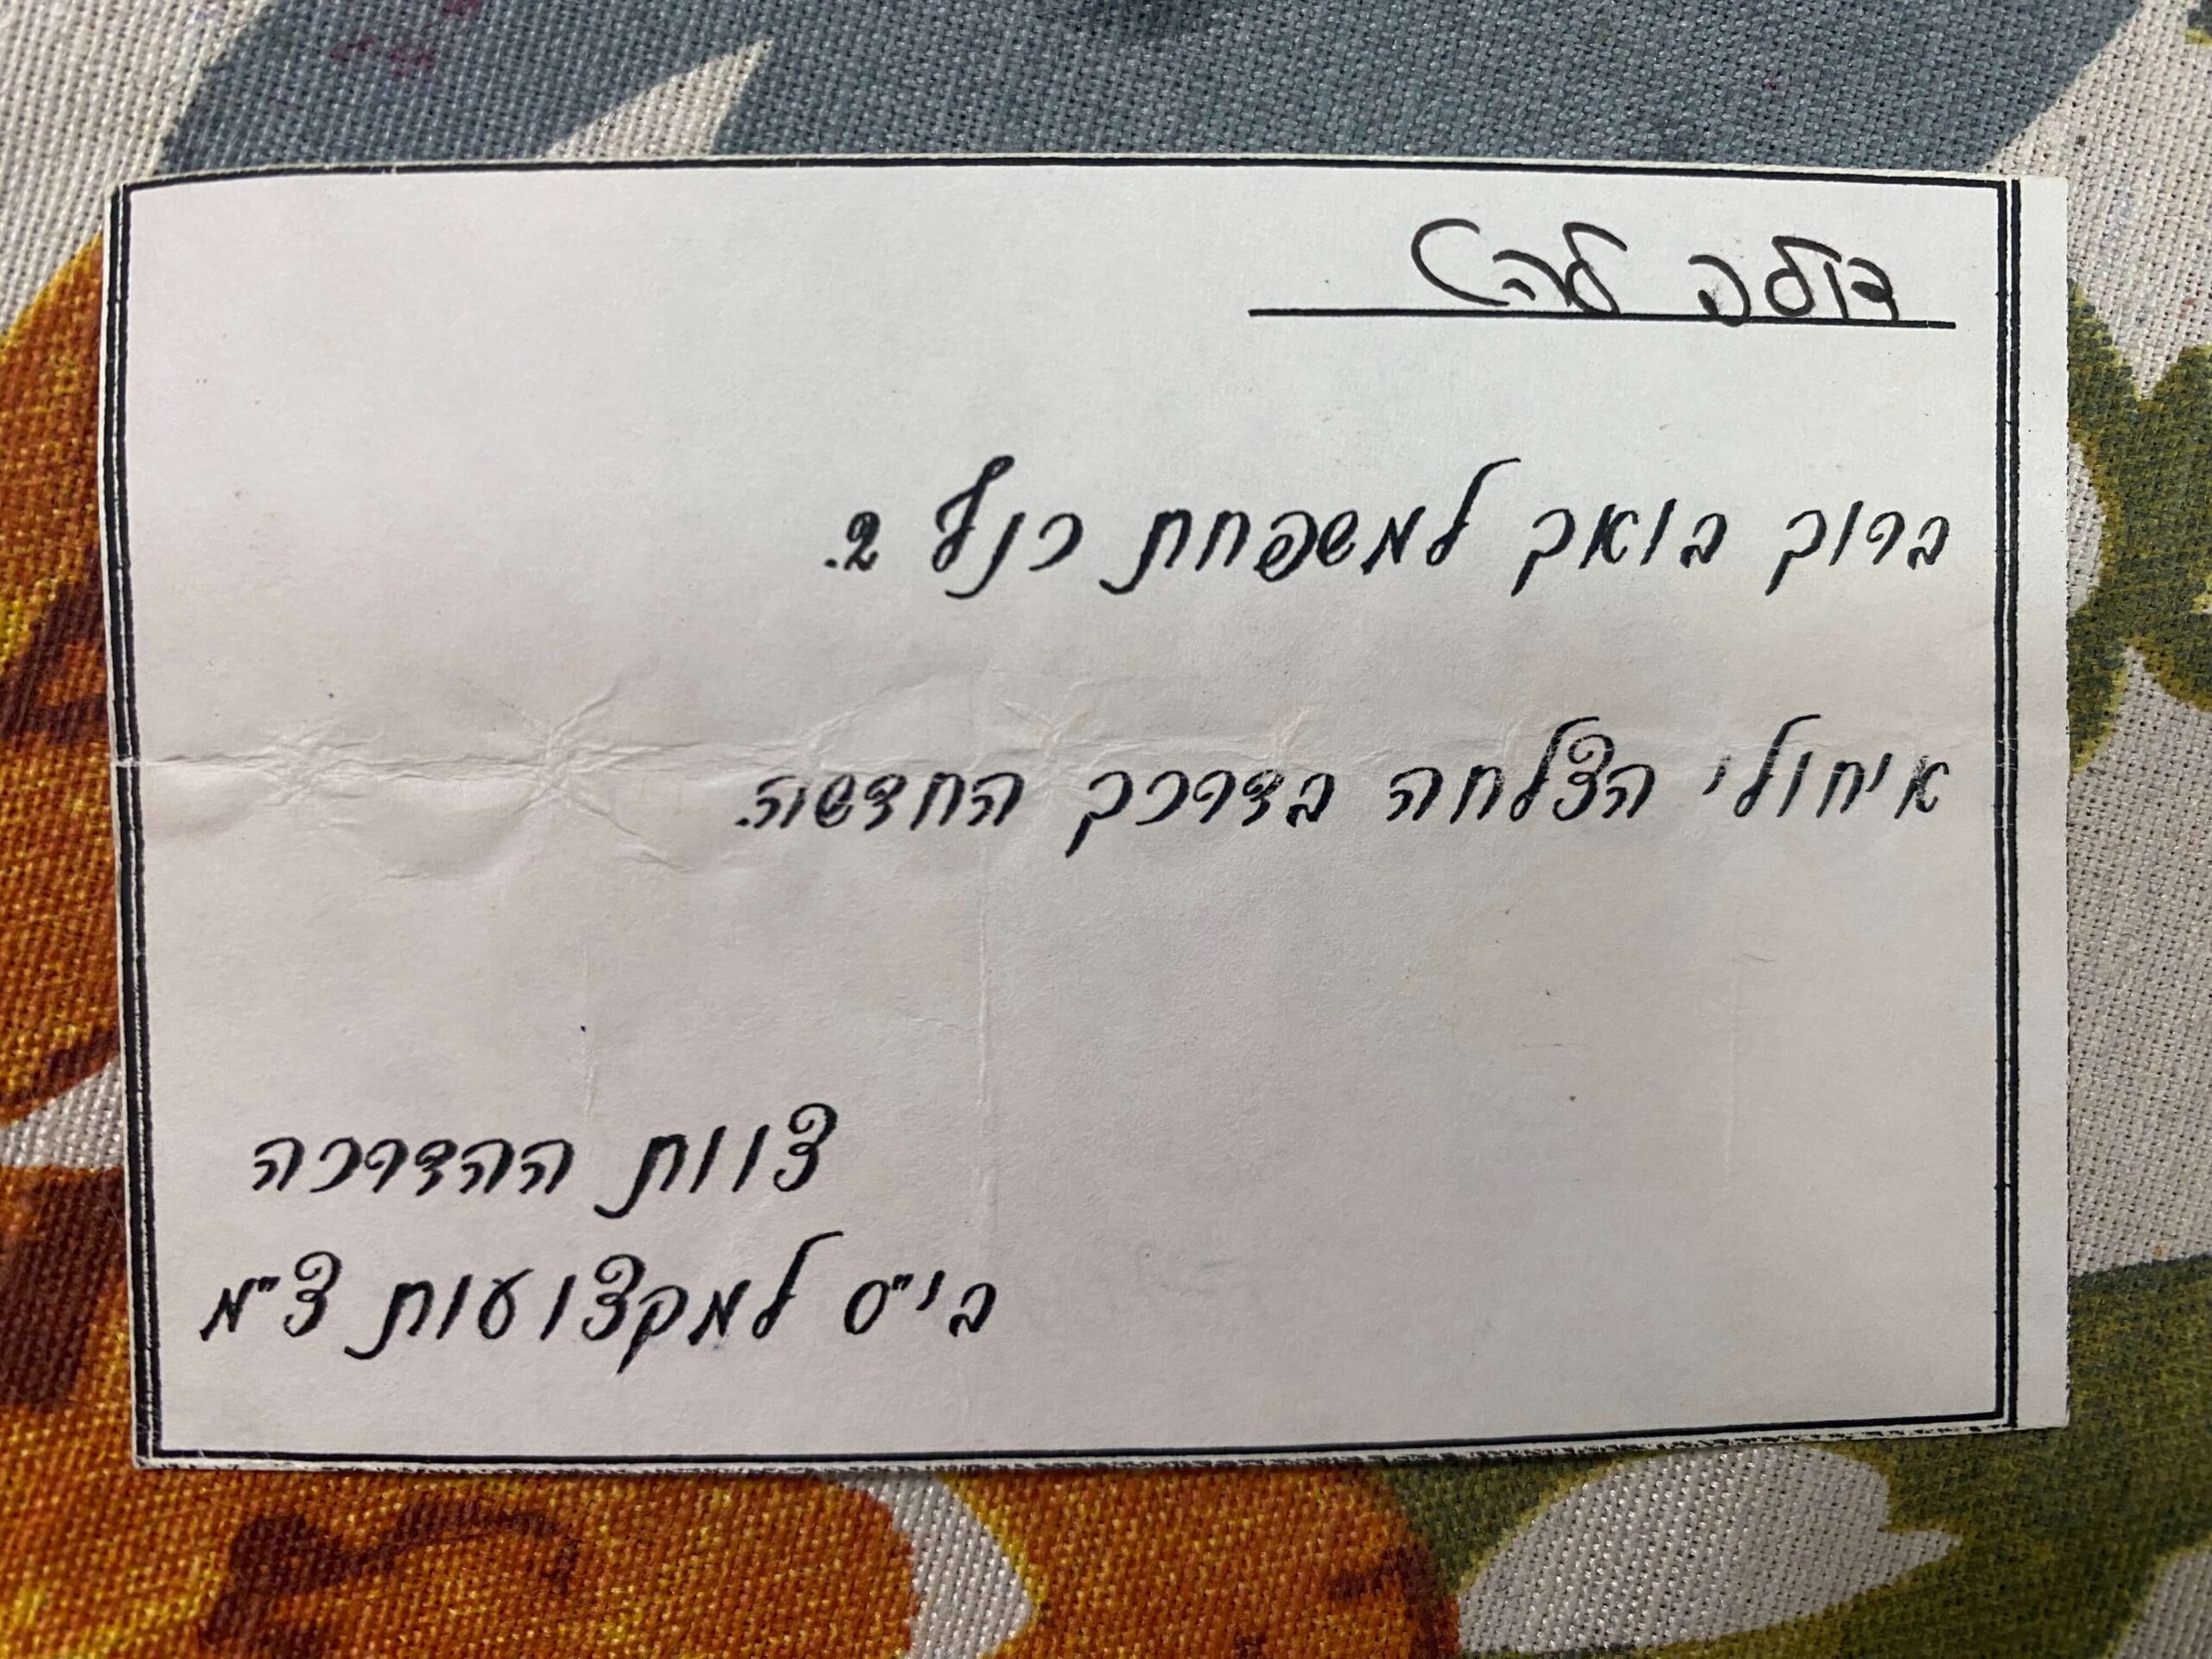 ברוך בואך למשפחת כנף 2.
איחולי הצלחה בדרכך החדשה.
צוות ההדרכה
בי"ס למקצועות צ"מ